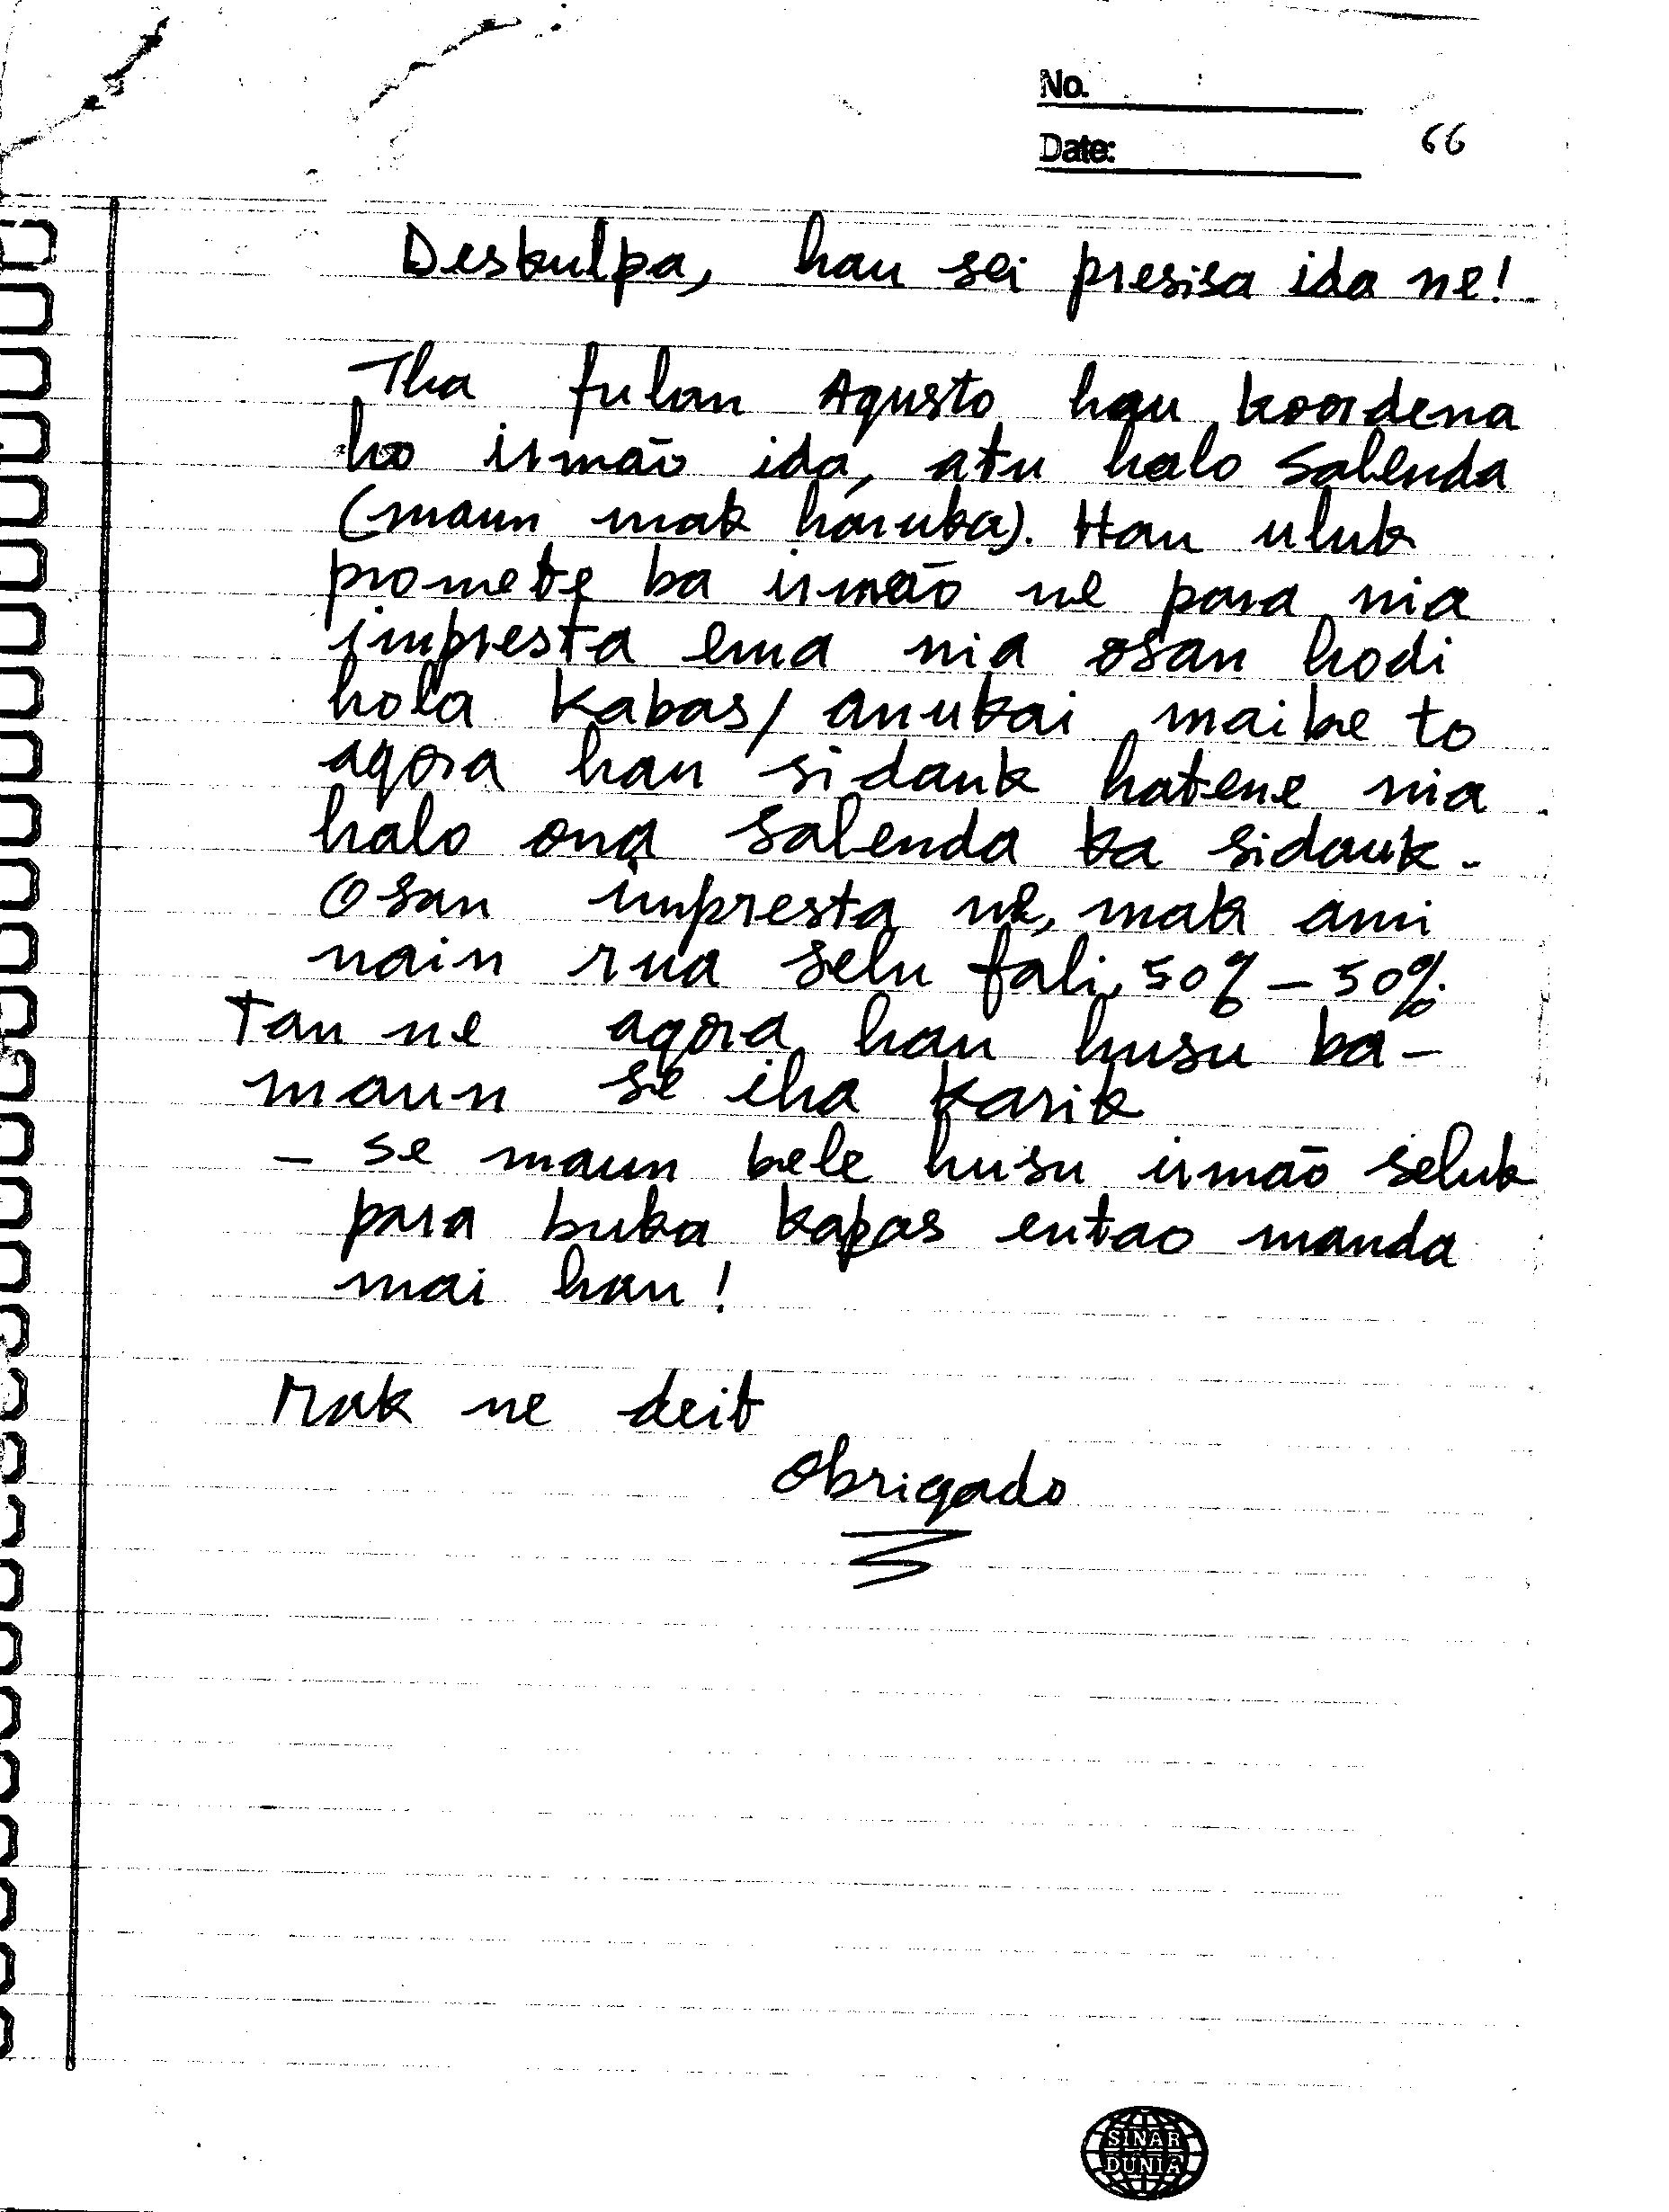 No.
Date:
66
Deskulpa, hau sei presisa ida ne!
Iha fulan Agusto hau koordena
ho irmão ida, atu halo Salenda
(maun mak haruka). Hau uluk
promete ba irmão ne para nia
impresta ema nia osan hodi
hola kabas/ anukai maibe to
agora hau sidauk hatene nia
halo ona salenda ka sidauk.
Osan impresta ne, mak ami
nain rua selu fali, 50% - 50%.
Tan ne agora hau husu ba-
maun se iha karik
- se maun bele husu irmão seluk
para buka kapas entao manda
mai hau!
Mak ne deit
Obrigado
SINAR
DUNIA